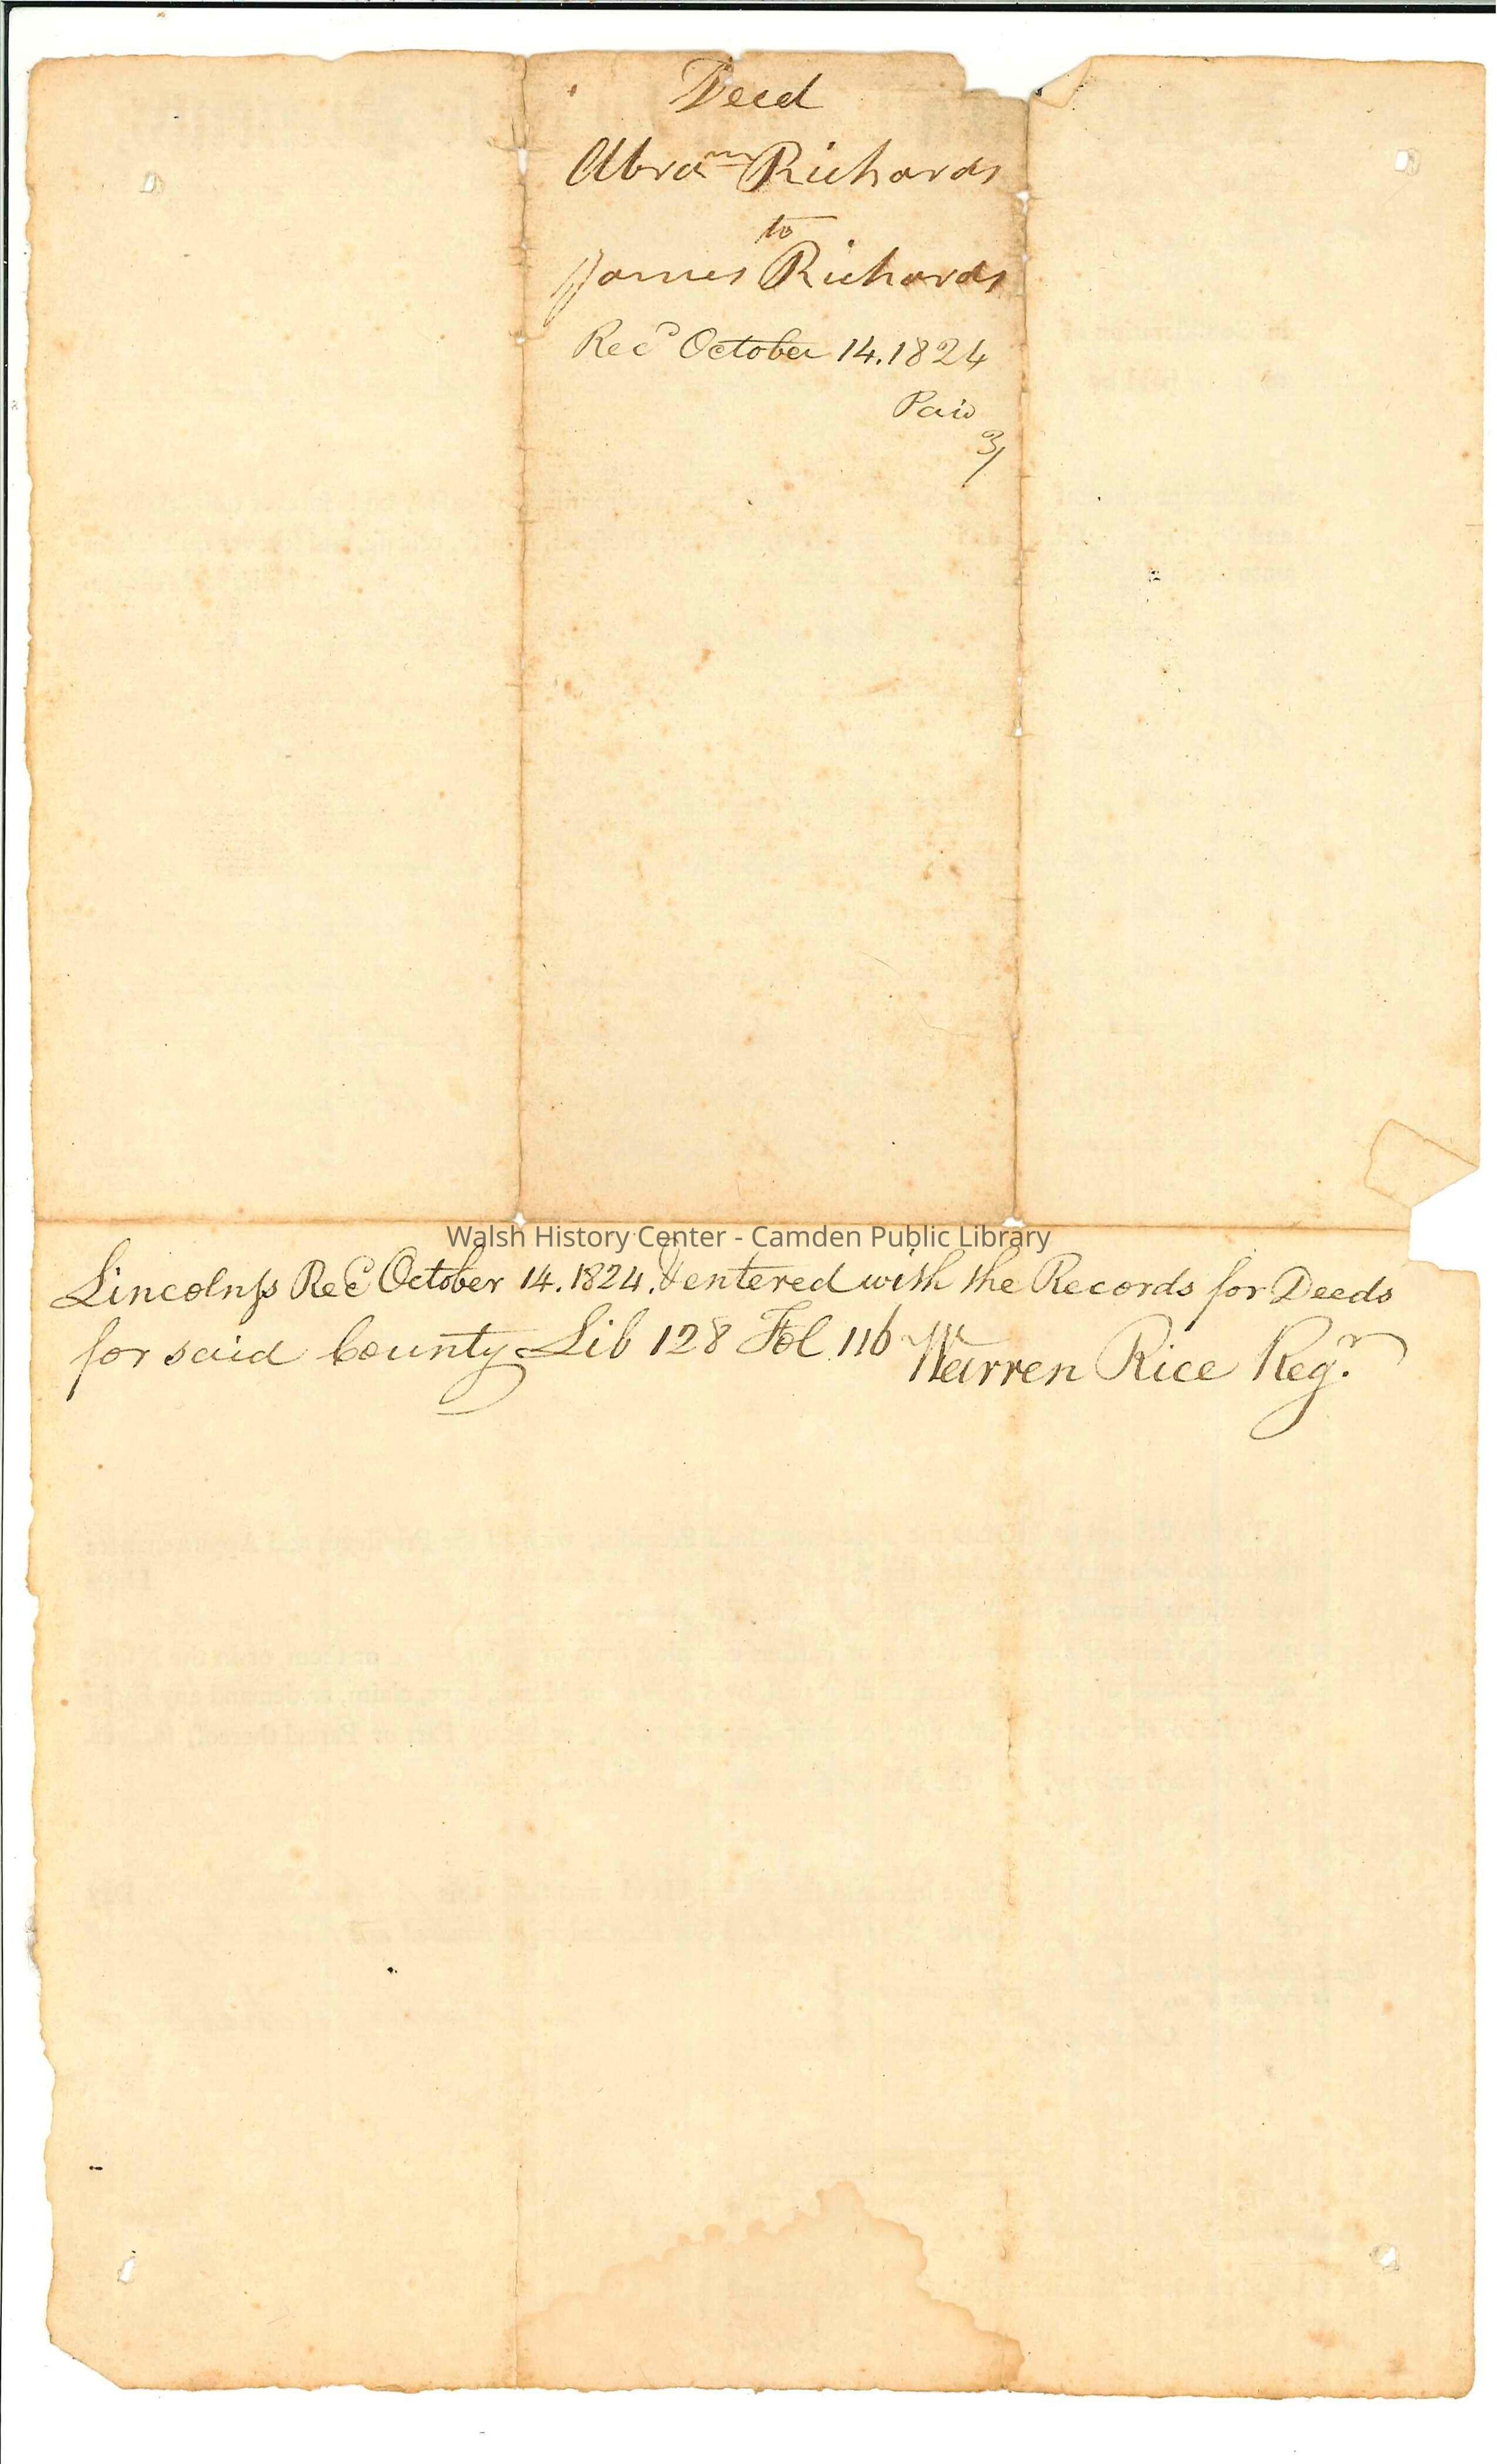 Deed
Abra<sup>m</sup> Richards
to
James Richards
Rec<sup>d</sup> October 14. 1824
Paid
3/
Walsh History Center - Camden Public Library
Lincoln ss Rec<sup>d</sup> October 14. 1824. & entered with the Records for Deeds
for said County Lib 128 Fol 116 Warren Rice Reg<sup>r</sup>.